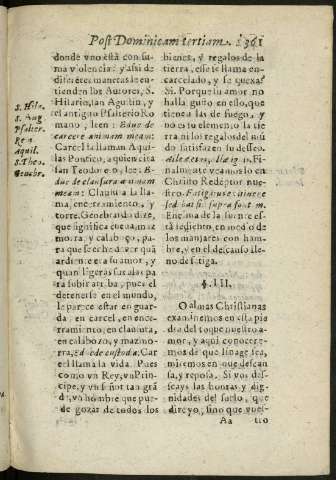 Post Dominicam tertiam. 361
donde vno està con su-
ma violencia: y assi de
diferẽtes maneras la en-
tienden los Autores, S.
Hilario, san Agustin, y
el antiguo Psalterio Ro
mano, leen: Educ de
carcere animam meam:
Carcel la llaman. Aqui-
las Pontico, a quien cita
san Teodoreto, lee: E-
duc de clausura animam
meam: Clausula la lla-
ma, encerramiento, y
torre. Genebrardo dize,
que significa
mora, y calaboço, pa-
ra que se eche de ver quã
ardiente era su amor, y
quan ligeras sus alas pa
ra subir arriba, pues el
detenerse en el mundo,
le parece estar en guar-
da, en carcel, en encer-
ramiento, en clausura,
en calaboço, y mazmo-
rra, Educ de custodia. Car
cel llama la vida. Pues
como vn Rey, vn Prin-
cipe, y vn señor tan grã
de, vn hombre que pue-
de gozar de todos los
S. Hila.
S. Aug
Psalter.
Ro.
Aquil.
S. Theo.
Genebr.
bienes, y regalos de la
tierra, esse se llama en-
carcelado, y se quexa?
Si. Porque su amor no
halla gusto en esso, que
tienen alas de fuego, y
no es su elemento la tie
rra, ni los regalos del mũ
do satisfazen su desseo.
Fi-
nalmente veamoslo en
Christo Redẽptor nues-
tro. Fatigatus ex itinere
sedebat sic supra fontem.
Encima de la fuente es-
tà sediento, en medio de
los manjares con ham-
bre, y en el descanso lle-
no de fatiga.
§. III.
O almas Christianas
examinemos en esta pie
dra del toque nuestro a-
mor, y aqui conocere-
mos de que linage sea,
miremos en que descan
sa, y reposa. Si vos des-
seays las honras y dig-
nidades del suelo, que
diré yo, sino que vues-
Aa tro